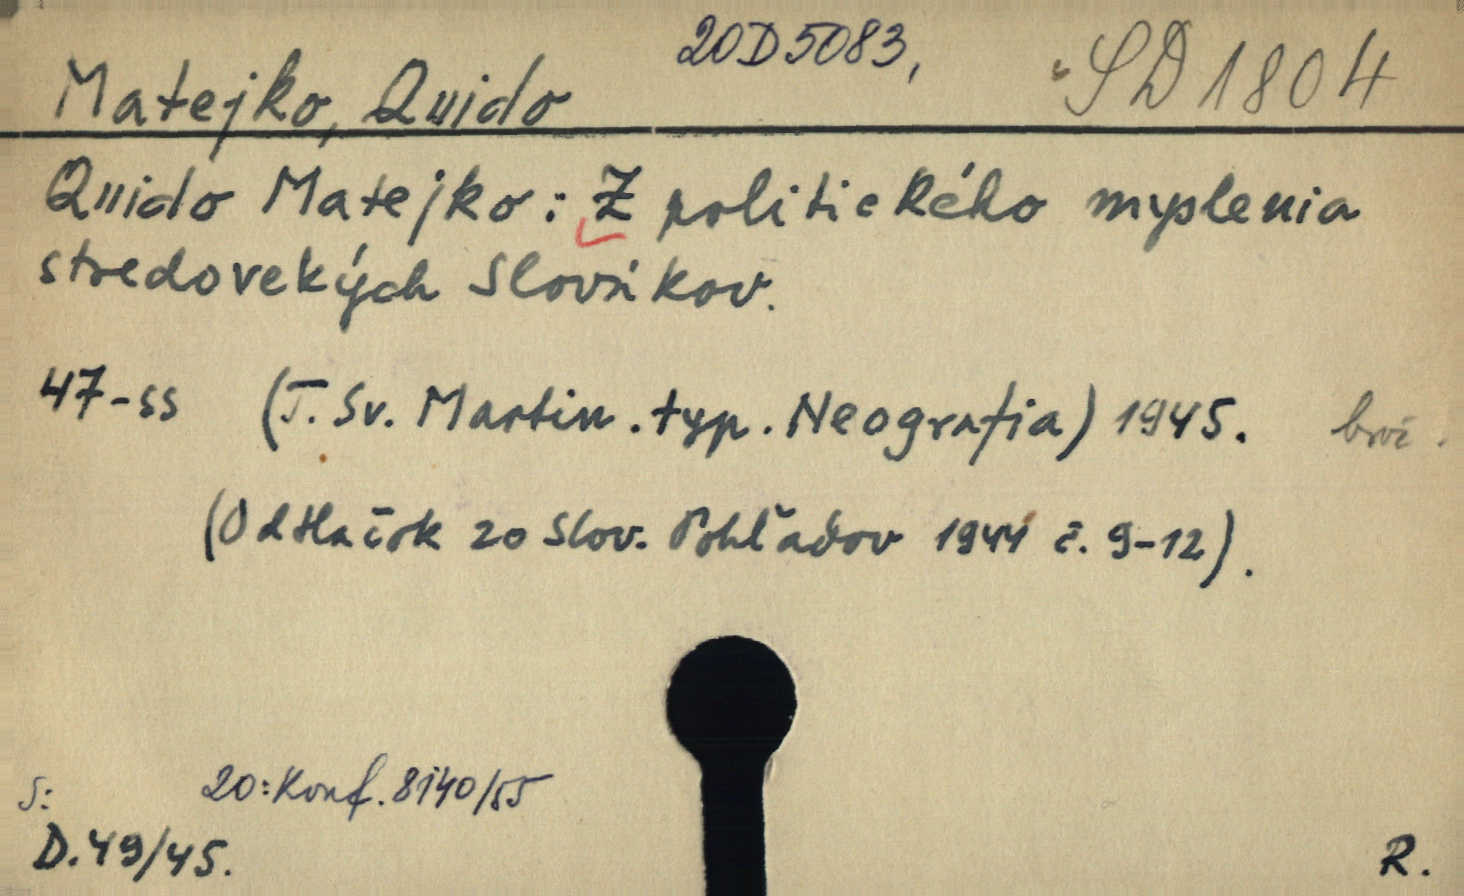 20D5083, SD1804
Matejko, Quido
Quido Matejko: Z politického myslenia
stredovekých Slovákov.
47-ss (T. Sv. Martin. typ. Neografia) 1945. brož.
(Odtlačok zo Slov. Pohľadov 1944 č. 9-12).
S: 20: Konf. 8140/55
D.49/45. R.